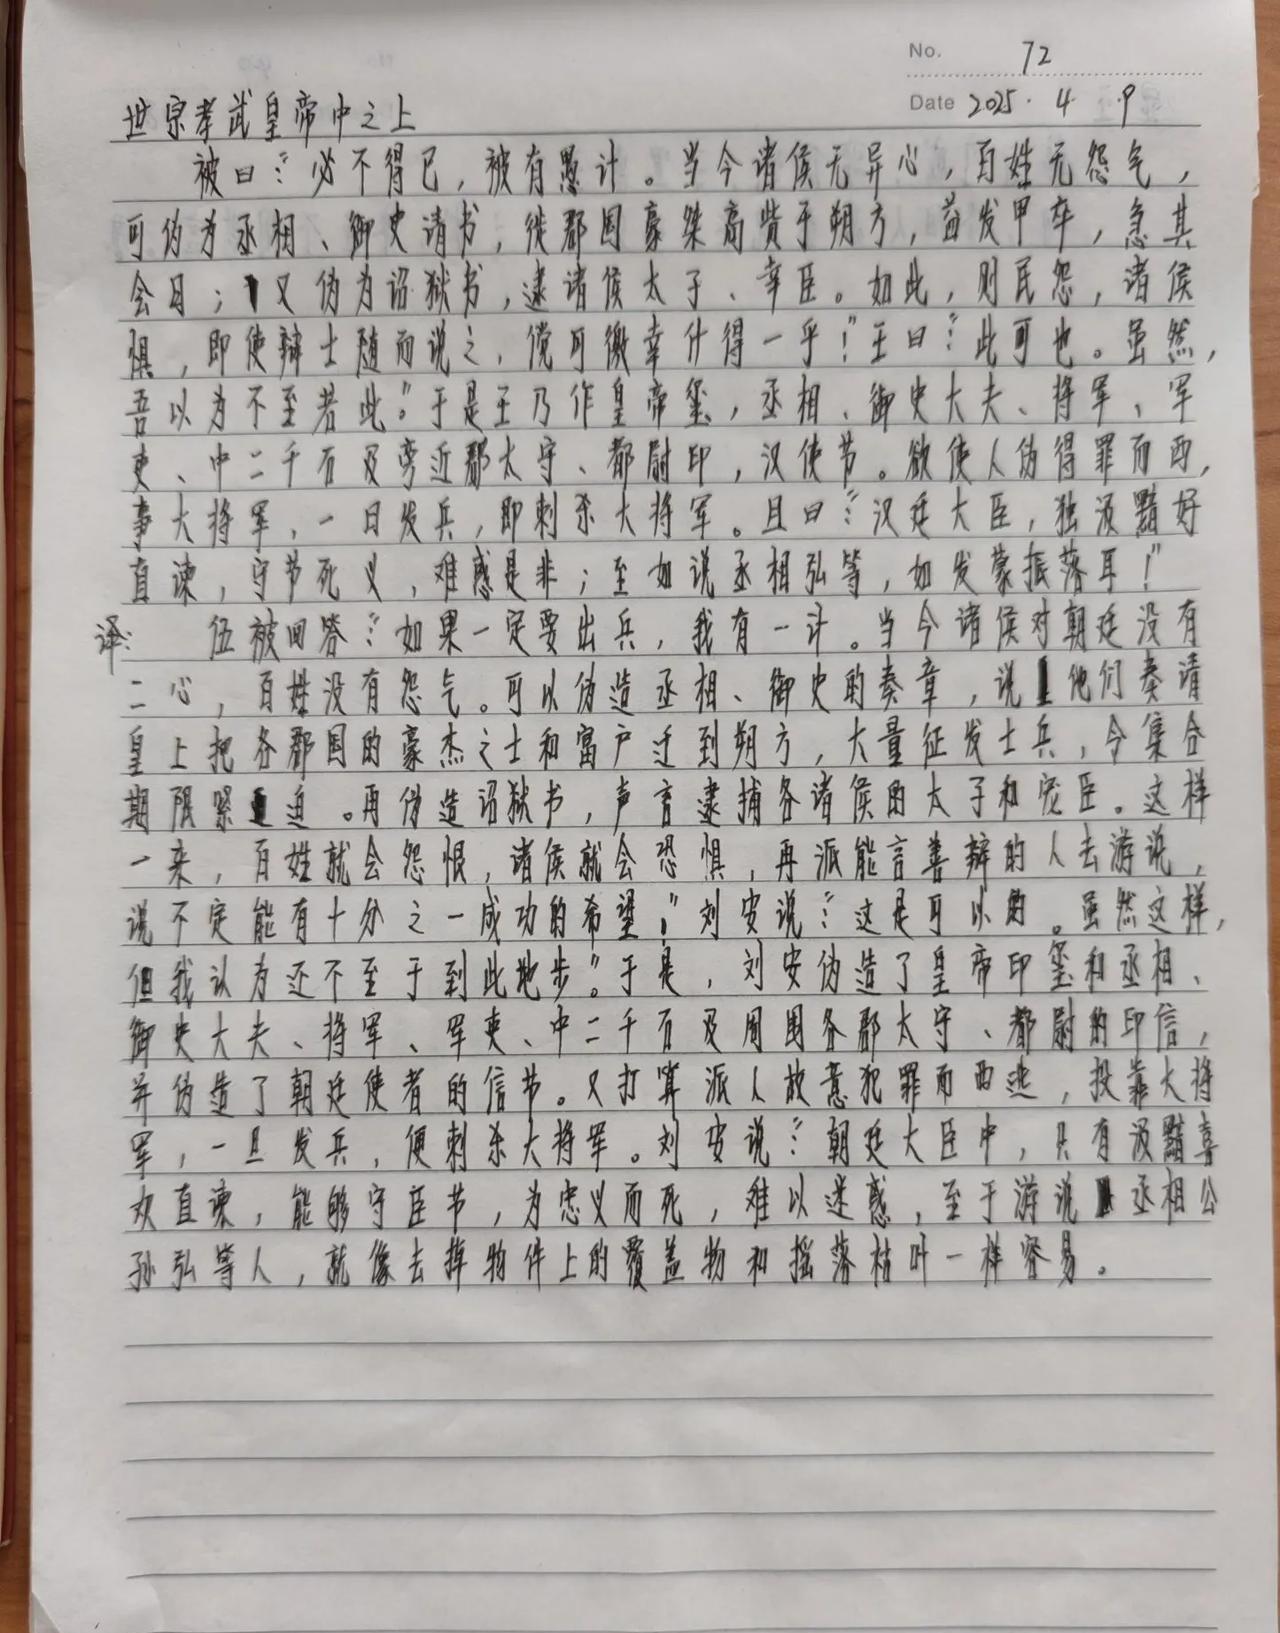 No. 72
Date 2025. 4 .9
世宗孝武皇帝中之上
被曰：“必不得已，被有愚计。当今诸侯无异心，百姓无怨气，
可伪为丞相、御史请书，徙郡国豪桀高赀于朔方，益发甲卒，急其
会日；又伪为诏狱书，逮诸侯太子、幸臣。如此，则民怨，诸侯
惧，即使辩士随而说之，傥可徼幸什得一乎！”王曰：“此可也。虽然，
吾以为不至若此。”于是王乃作皇帝玺，丞相、御史大夫、将军、军
吏、中二千石及旁近郡太守、都尉印，汉使节。欲使人伪得罪而西，
事大将军，一日发兵，即刺杀大将军。且曰：“汉廷大臣，独汲黯好
直谏，守节死义，难惑是非；至如说丞相弘等，如发蒙振落耳！”
译： 伍被回答：“如果一定要出兵，我有一计。当今诸侯对朝廷没有
二心，百姓没有怨气。可以伪造丞相、御史的奏章，说他们奏请
皇上把各郡国的豪杰之士和富户迁到朔方，大量征发士兵，令集合
期限紧迫。再伪造诏狱书，声言逮捕各诸侯的太子和宠臣。这样
一来，百姓就会怨恨，诸侯就会恐惧，再派能言善辩的人去游说，
说不定能有十分之一成功的希望！”刘安说：“这是可以的。虽然这样，
但我认为还不至于到此地步。”于是，刘安伪造了皇帝印玺和丞相、
御史大夫、将军、军吏、中二千石及周围各郡太守、都尉的印信，
并伪造了朝廷使者的信节。又打算派人故意犯罪而西逃，投靠大将
军，一旦发兵，便刺杀大将军。刘安说：“朝廷大臣中，只有汲黯喜
欢直谏，能够守臣节，为忠义而死，难以迷惑，至于游说丞相公
孙弘等人，就像去掉物件上的覆盖物和摇落枯叶一样容易。